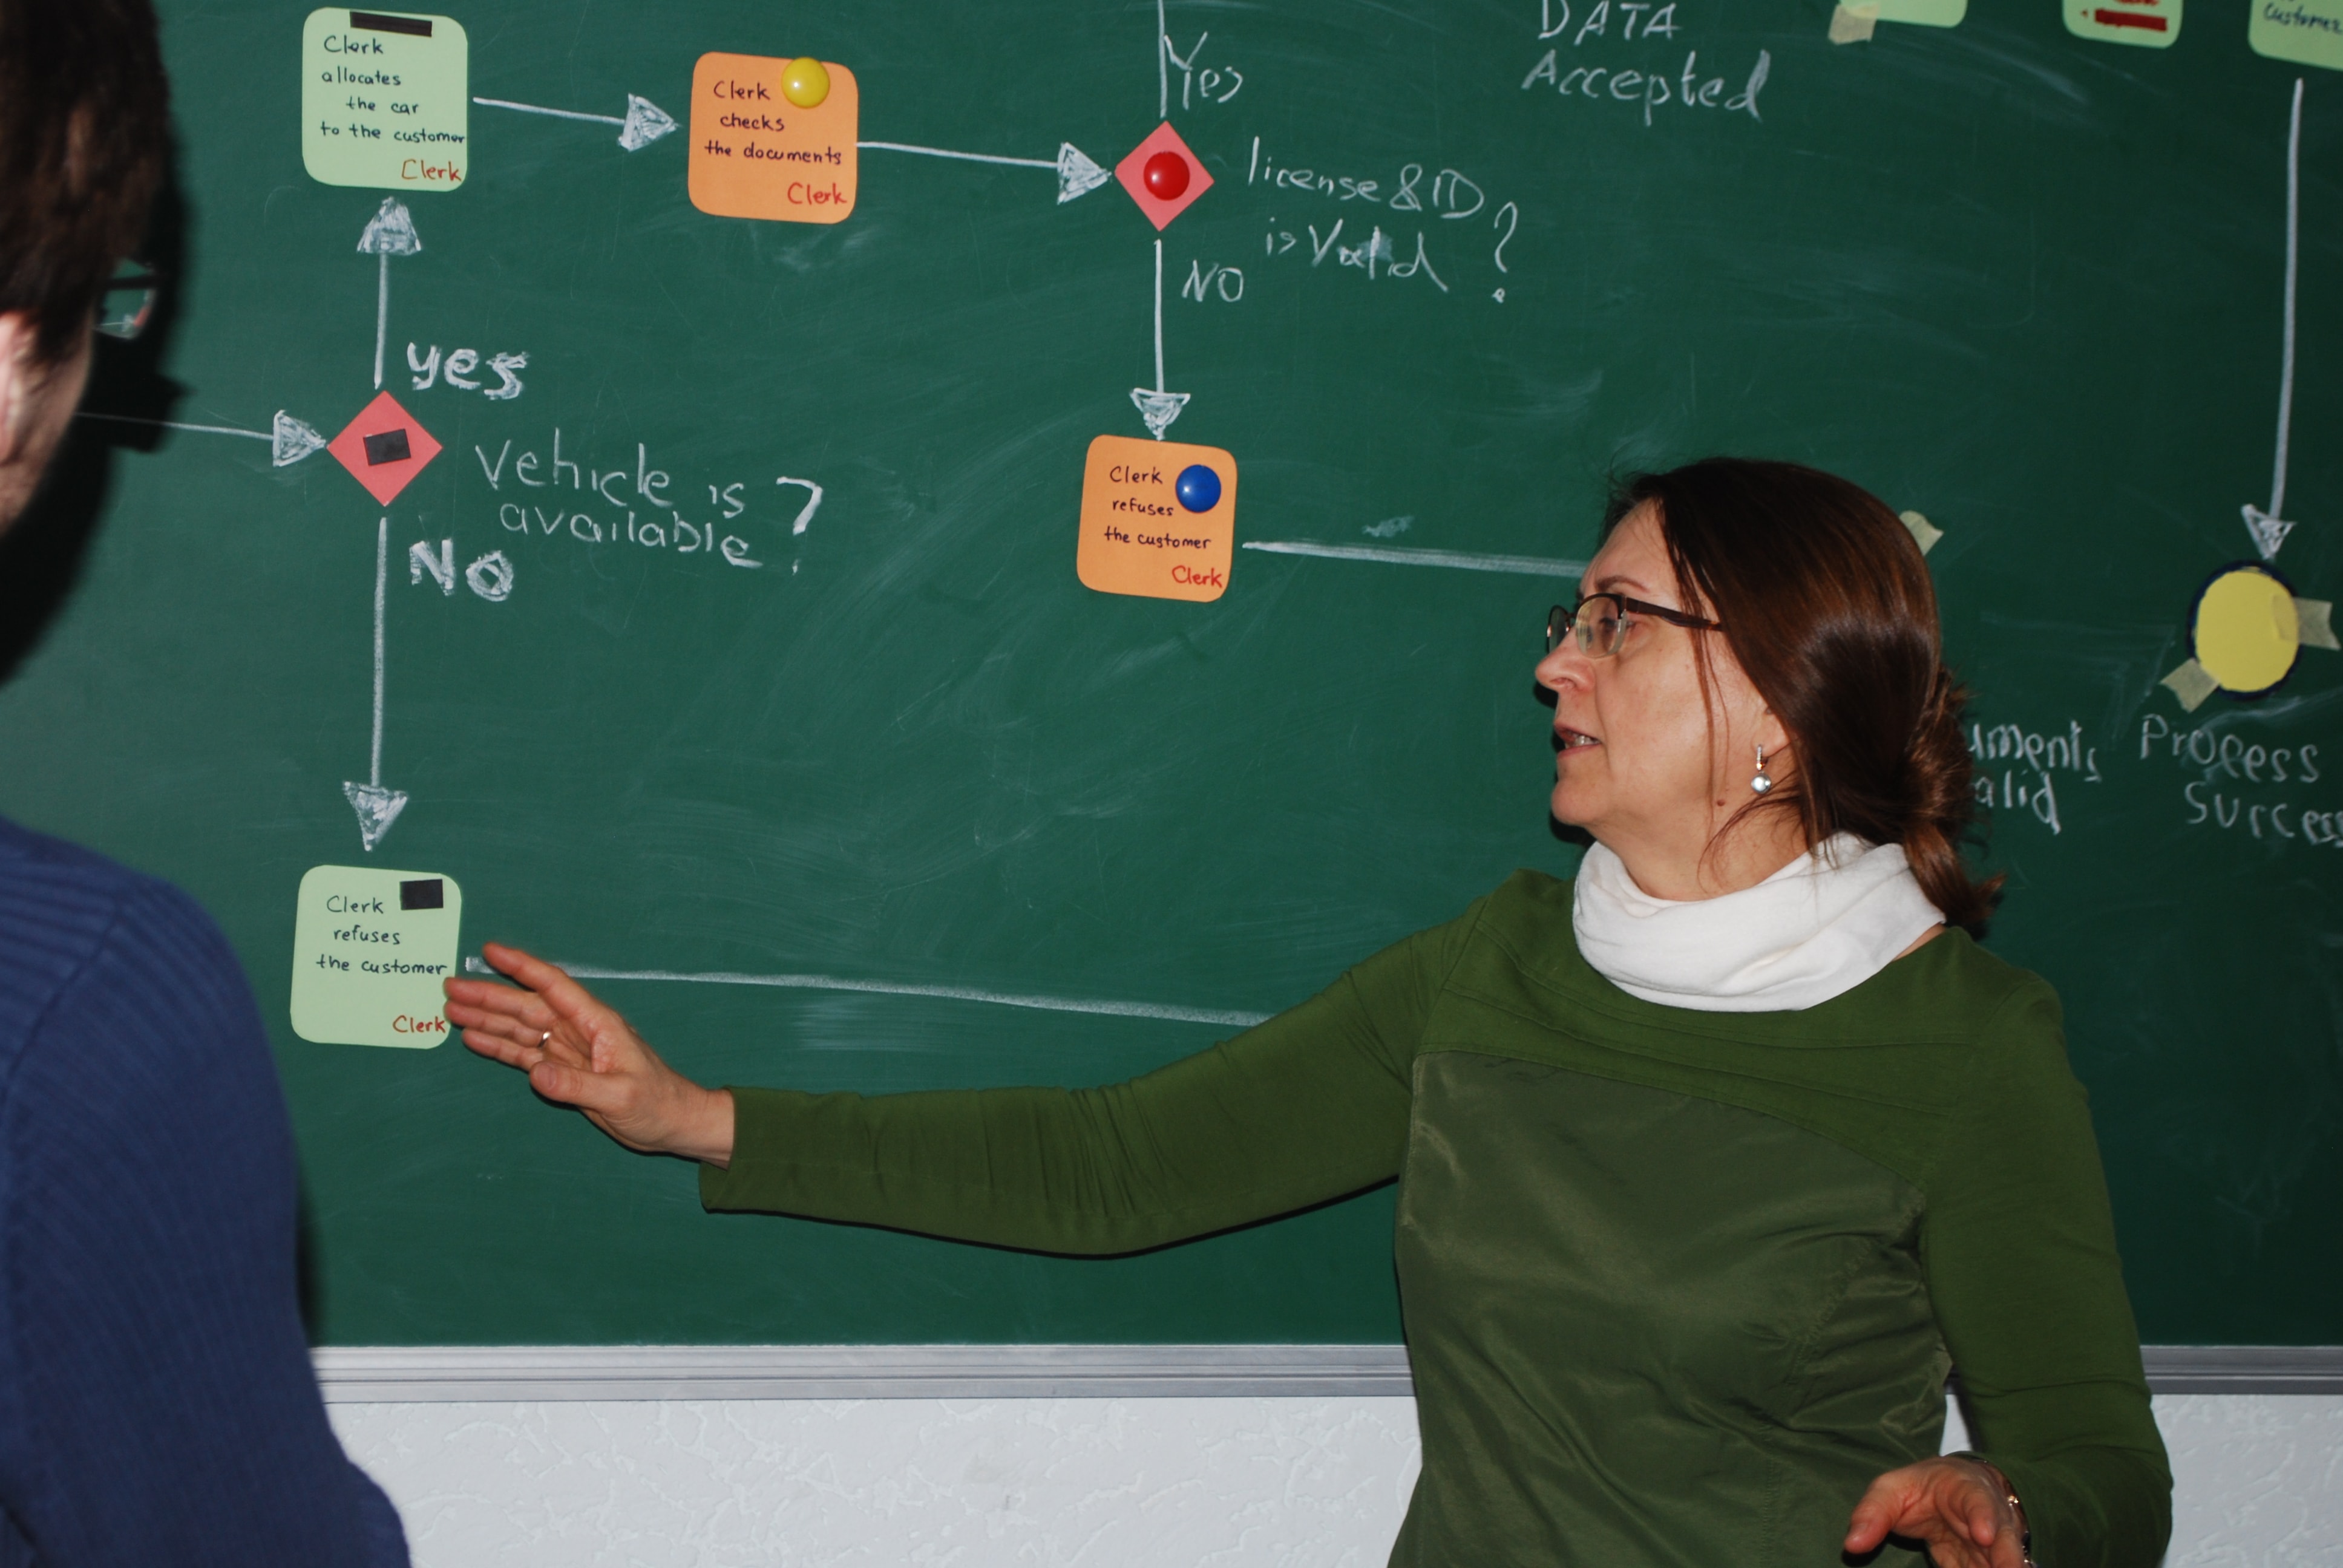 Clerk
allocates
the car
to the customer
Clerk
Clerk
checks
the documents
Clerk
Yes
license & ID
is Valid ?
NO
DATA
Accepted
customer
yes
Vehicle is
available ?
No
Clerk
refuses
the customer
Clerk
Clerk
refuses
the customer
Clerk
Process